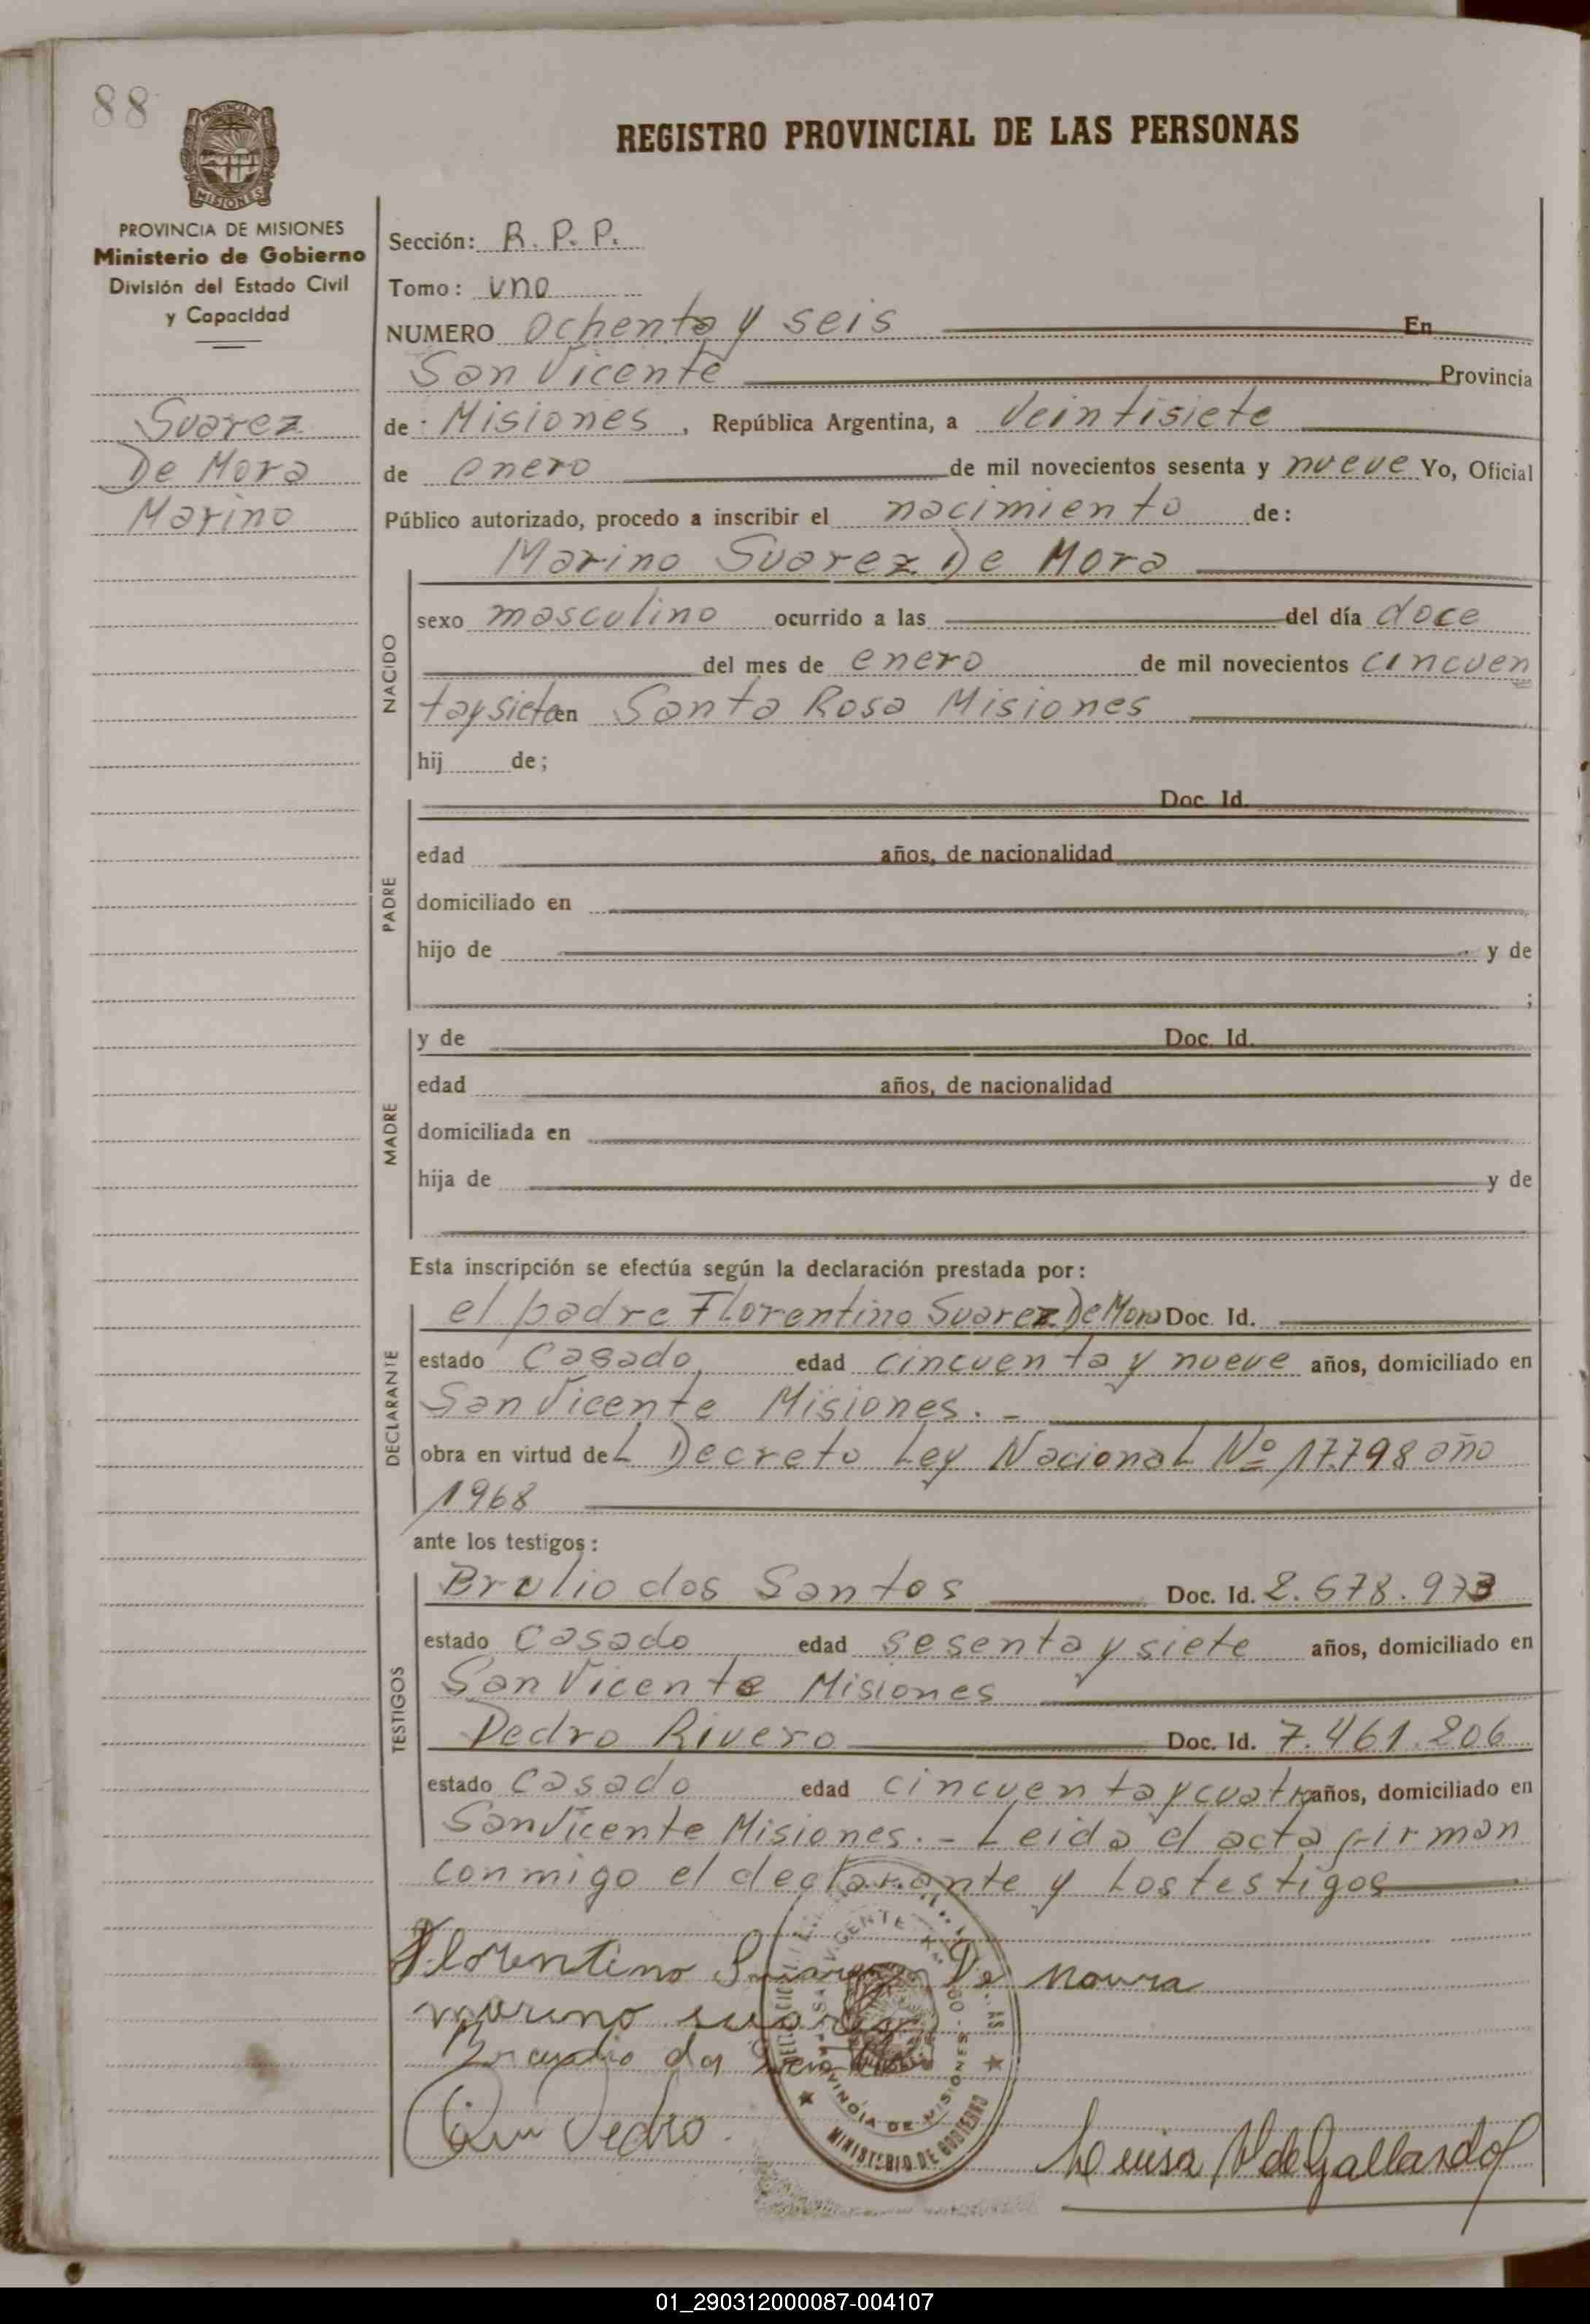 88
REGISTRO PROVINCIAL DE LAS PERSONAS
PROVINCIA DE MISIONES
Ministerio de Gobierno
División del Estado Civil
y Capacidad
Suarez
De Mora
Marino
Sección: R. P. P.
Tomo: uno
NUMERO Ochenta y seis En
San Vicente Provincia
de Misiones, República Argentina, a Veintisiete
de enero de mil novecientos sesenta y nueve Yo, Oficial
Público autorizado, procedo a inscribir el nacimiento de:
Marino Suarez De Mora
NACIDO
sexo masculino ocurrido a las del día doce
del mes de enero de mil novecientos cincuen
taysiete en Santa Rosa Misiones
hij de;
PADRE
Doc. Id.
edad años, de nacionalidad
domiciliado en
hijo de y de
;
MADRE
y de Doc. Id.
edad años, de nacionalidad
domiciliada en
hija de y de
Esta inscripción se efectúa según la declaración prestada por:
DECLARANTE
el padre Florentino Suarez De Mora Doc. Id.
estado Casado, edad cincuenta y nueve años, domiciliado en
San Vicente Misiones. -
obra en virtud deL Decreto Ley Nacional Nº 17.798 año
1968
ante los testigos:
TESTIGOS
Brulio dos Santos Doc. Id. 2.678.973
estado Casado edad sesenta y siete años, domiciliado en
San Vicente Misiones
Pedro Rivero Doc. Id. 7.461.206
estado Casado edad cincuentaycuatro años, domiciliado en
San Vicente Misiones. - Leida el acta firman
conmigo el declarante y Los testigos
Florentino Suarez De Moura
marino suarez
dos Santos
Pedro
Luisa de Gallardo
PROVINCIA DE MISIONES
MINISTERIO DE GOBIERNO
01_290312000087-004107